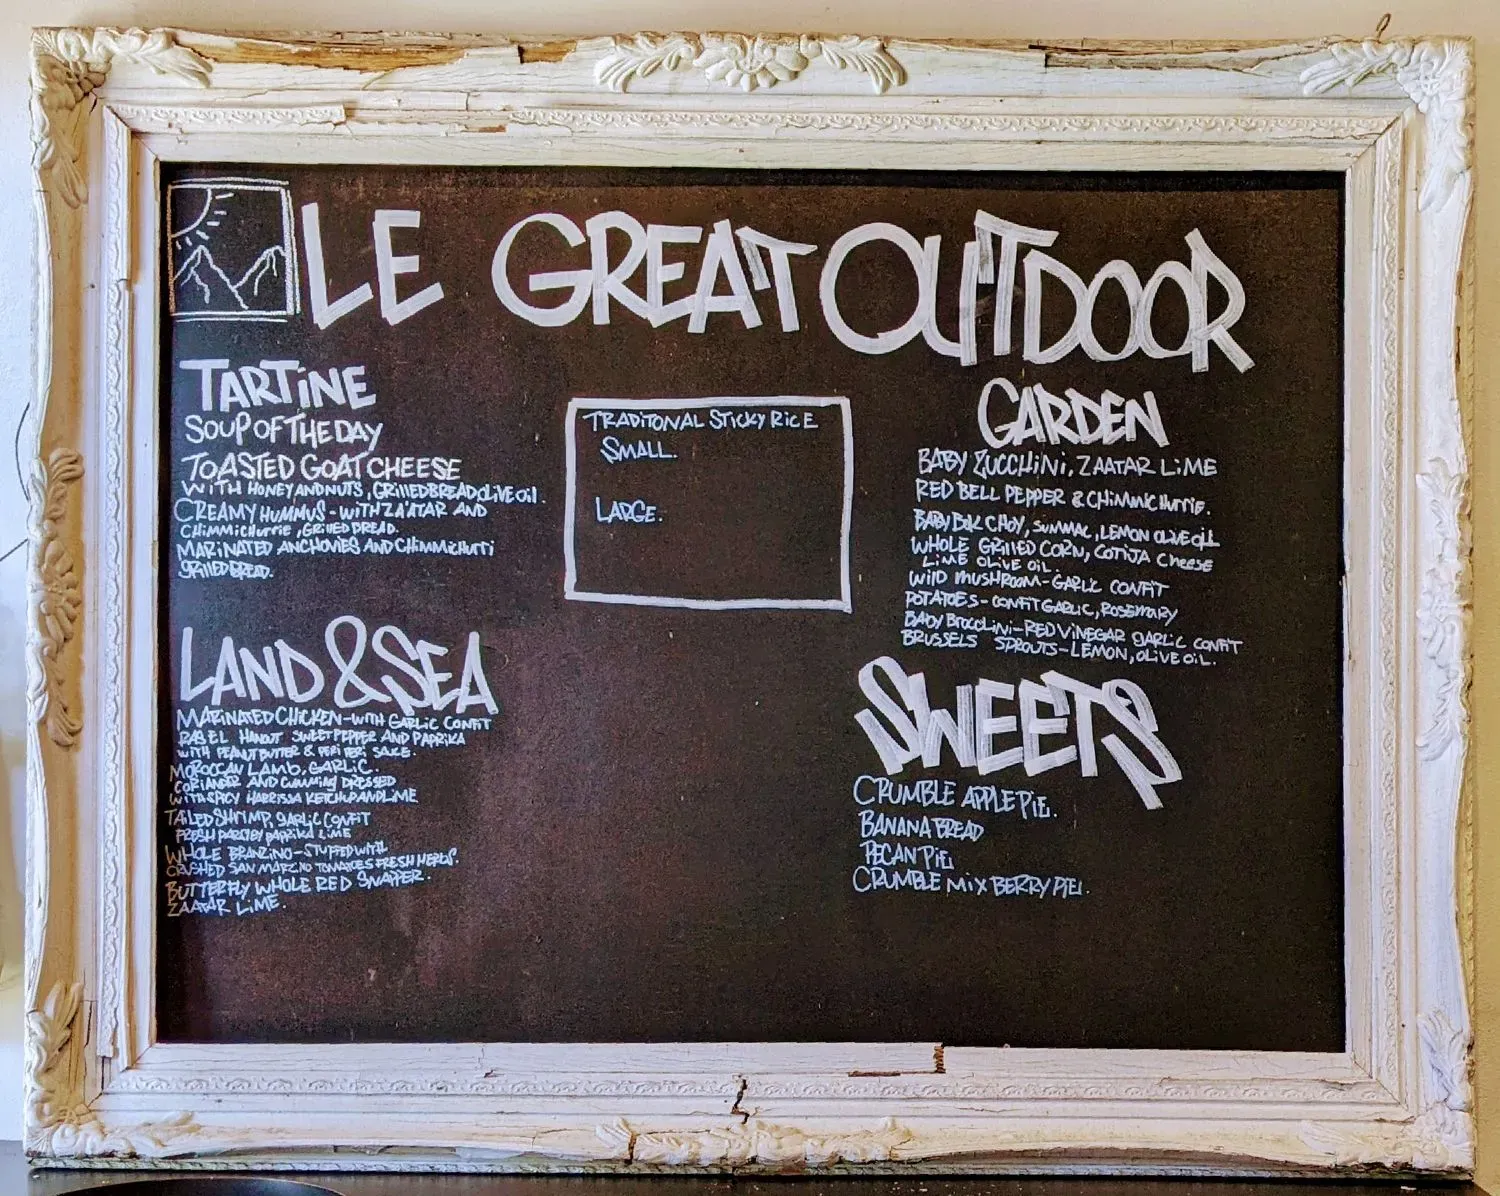 LE GREAT OUTDOOR
TARTINE
SOUP OF THE DAY
TOASTED GOAT CHEESE
WITH HONEY AND NUTS, GRILLED BREAD, OLIVE OIL.
CREAMY HUMMUS - WITH ZA'ATAR AND
CHIMMICHURRIE, GRILLED BREAD.
MARINATED ANCHOVIES AND CHIMMICHURRI
GRILLED BREAD.
LAND & SEA
MARINATED CHICKEN - WITH GARLIC CONFIT
RAS EL HANOUT SWEET PEPPER AND PAPRIKA
WITH PEANUT BUTTER & PERI PERI SAUCE.
MOROCCAN LAMB, GARLIC.
CORIANDER AND CUMMING DRESSED
WITH SPICY HARRISSA KETCHUP AND LIME
TAILED SHRIMP, GARLIC CONFIT
FRESH PARSLEY PAPRIKA LIME
WHOLE BRANZINO - STUFFED WITH
CRUSHED SAN MARZNO TOMATOES FRESH HERBS.
BUTTERFLY WHOLE RED SNAPPER.
ZAATAR LIME.
TRADITONAL STICKY RICE
SMALL.
LARGE.
GARDEN
BABY ZUCCHINI, ZAATAR LIME
RED BELL PEPPER & CHIMMICHURRIE.
BABY BOK CHOY, SUMMAC, LEMON OLIVE OIL
WHOLE GRILLED CORN, COTIJA CHEESE
LIME OLIVE OIL.
WILD MUSHROOM - GARLIC CONFIT
POTATOES - CONFIT GARLIC, ROSEMARY
BABY BROCCLINI - RED VINEGAR GARLIC CONFIT
BRUSSELS SPROUTS - LEMON, OLIVE OIL.
SWEETS
CRUMBLE APPLE PIE.
BANANA BREAD
PECAN PIE
CRUMBLE MIX BERRY PIE.